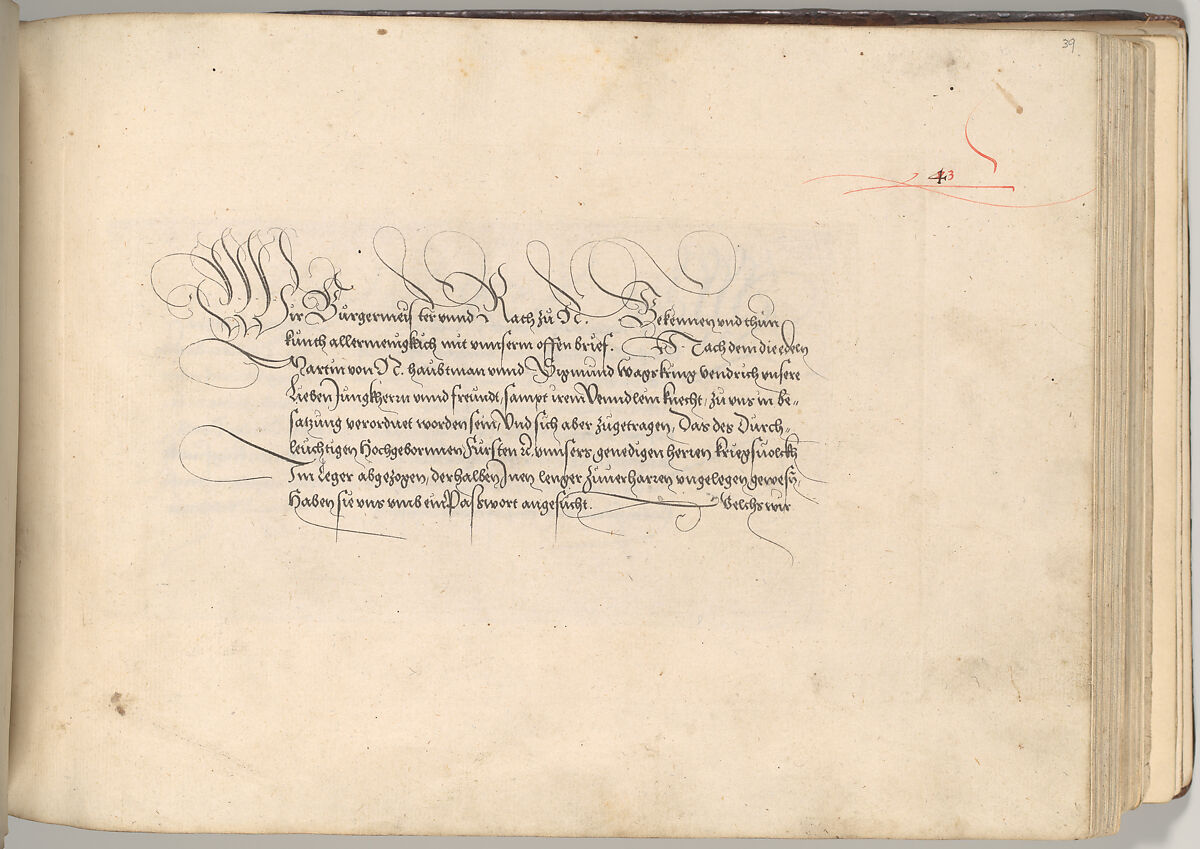 39
43
Wir Burgermeister vnnd Rath zu N. Bekennen vnd thun
kunth allermenigklich mit vnnserm offen brief. Nach dem die edeln
Martin von N. haubtman vnnd Sigmund Wagskring vendrich vnsere
Lieben Jungkherrn vnnd freundt, sampt irem Venndlein knecht, zu vns in be-
satzung verordnet worden sein, Vnd sich aber zugetragen, Das des Durch-
leuchtigen Hochgebornnen Fursten ꝛc. vnnsers genedigen herren kriegsuolckh
Im Leger abgezogen, derhalben Inen lenger zuuerharren vngelegen gewesn,
Haben sie vns vmb ein Passwort angesucht. Welchs wir